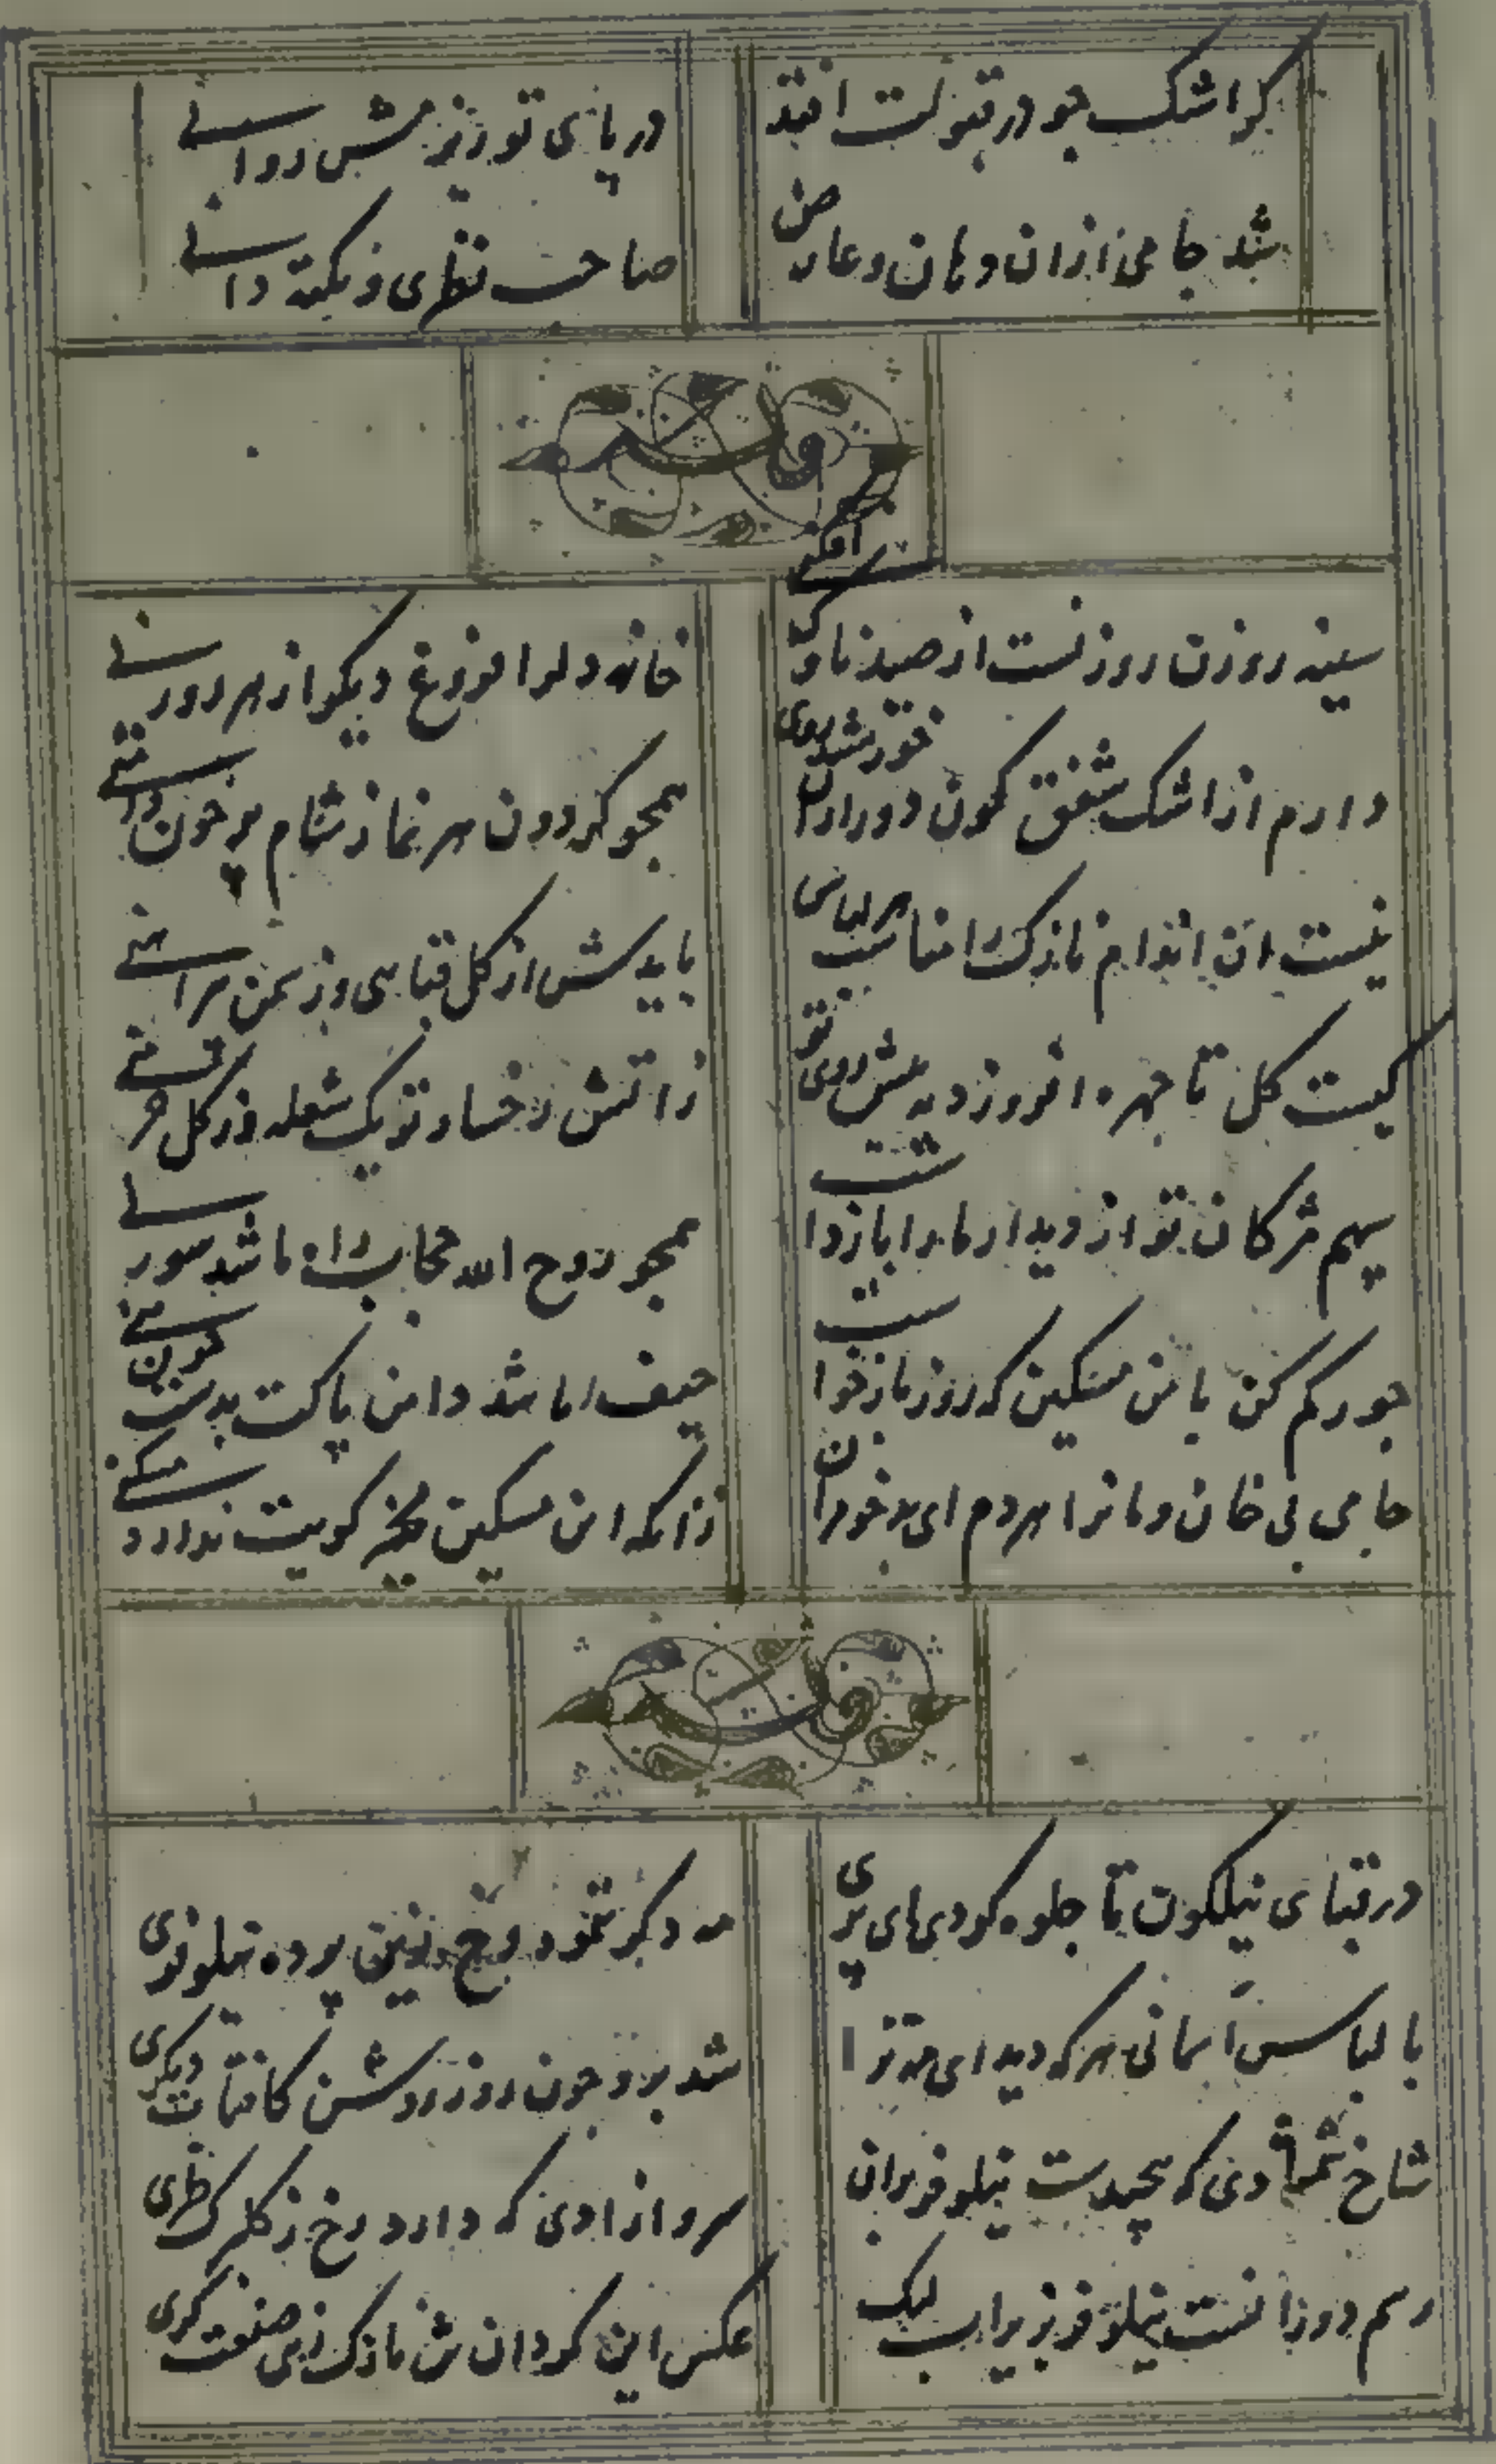 کر اشک جو در قبولت افتد
در پای تو ریزمش روانے
شد جامی ازان دهان و عارض
صاحب نظری و نکته دانے
سینه روزن روزنست از صید ناوک افکنے
خانه دلرا فروغ دیکر از هر روزنے
دارم از اشک شفق کون دور ازان خورشید روی
همجو کردون هر نماز شام پر خون دامنے
نیست ان اندام نازک را مناسب هر لباس
بایدش از کل قبایی وز سمن پیراهنے
کیست کل تا جهره افروزد به پیش روی تو
ز اتش رخسار تو یک شعله وز کل خرمنے
سهم مژکان تو از دیدار ما را باز داشت
همجو روح الله حجاب راه ما شد سوزنے
جور کم کن با من مسکین که روز بازخواست
حیف باشد دامن پاکت بدست جون منے
جامی بی خان و مانرا هردم از در خود مران
زانکه این مسکین بجز کویت ندارد مسکنے
در قبای نیلکون تا جلوه کردی ای پری
مه دکر ننمود رخ زین پرده نیلوفری
با لباس اسمانی هر که دید ای مه ترا
شد برو جون روز روشن کافتاب دیکری
شاخ شمشادی که پیچیدست نیلوفر بران
سرو ازادی که دارد رخ ز کلبرک طری
رسم دوزانست نیلوفر بر اب لیک
عکس این کرد ان تن نازک زهی صنعت کری